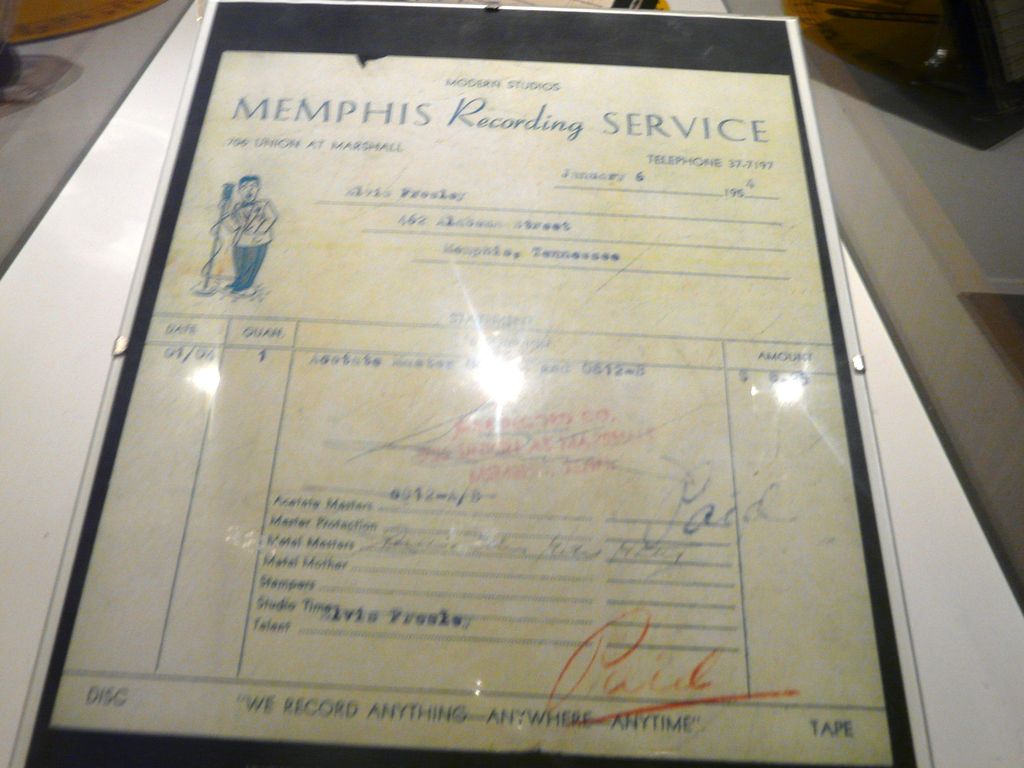 MODERN STUDIOS
MEMPHIS Recording SERVICE
706 UNION AT MARSHALL
TELEPHONE 37-7197
January 6 1954
Elvis Presley
462 Alabama Street
Memphis, Tennessee
STATEMENT
DATE QUAN. AMOUNT
01/04 1 Acetate Master and 0612-B $
706 UNION AT MARSHALL
0612-A/B
Acetate Masters
Master Protection
Paid
Metal Masters
Metal Mother
Stampers
Studio Time
Elvis Presley
Talent
Paid
DISC "WE RECORD ANYTHING-ANYWHERE-ANYTIME" TAPE